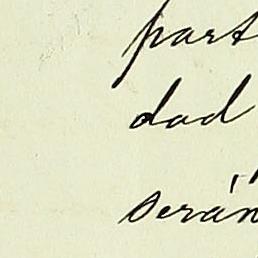 part
dad
serán